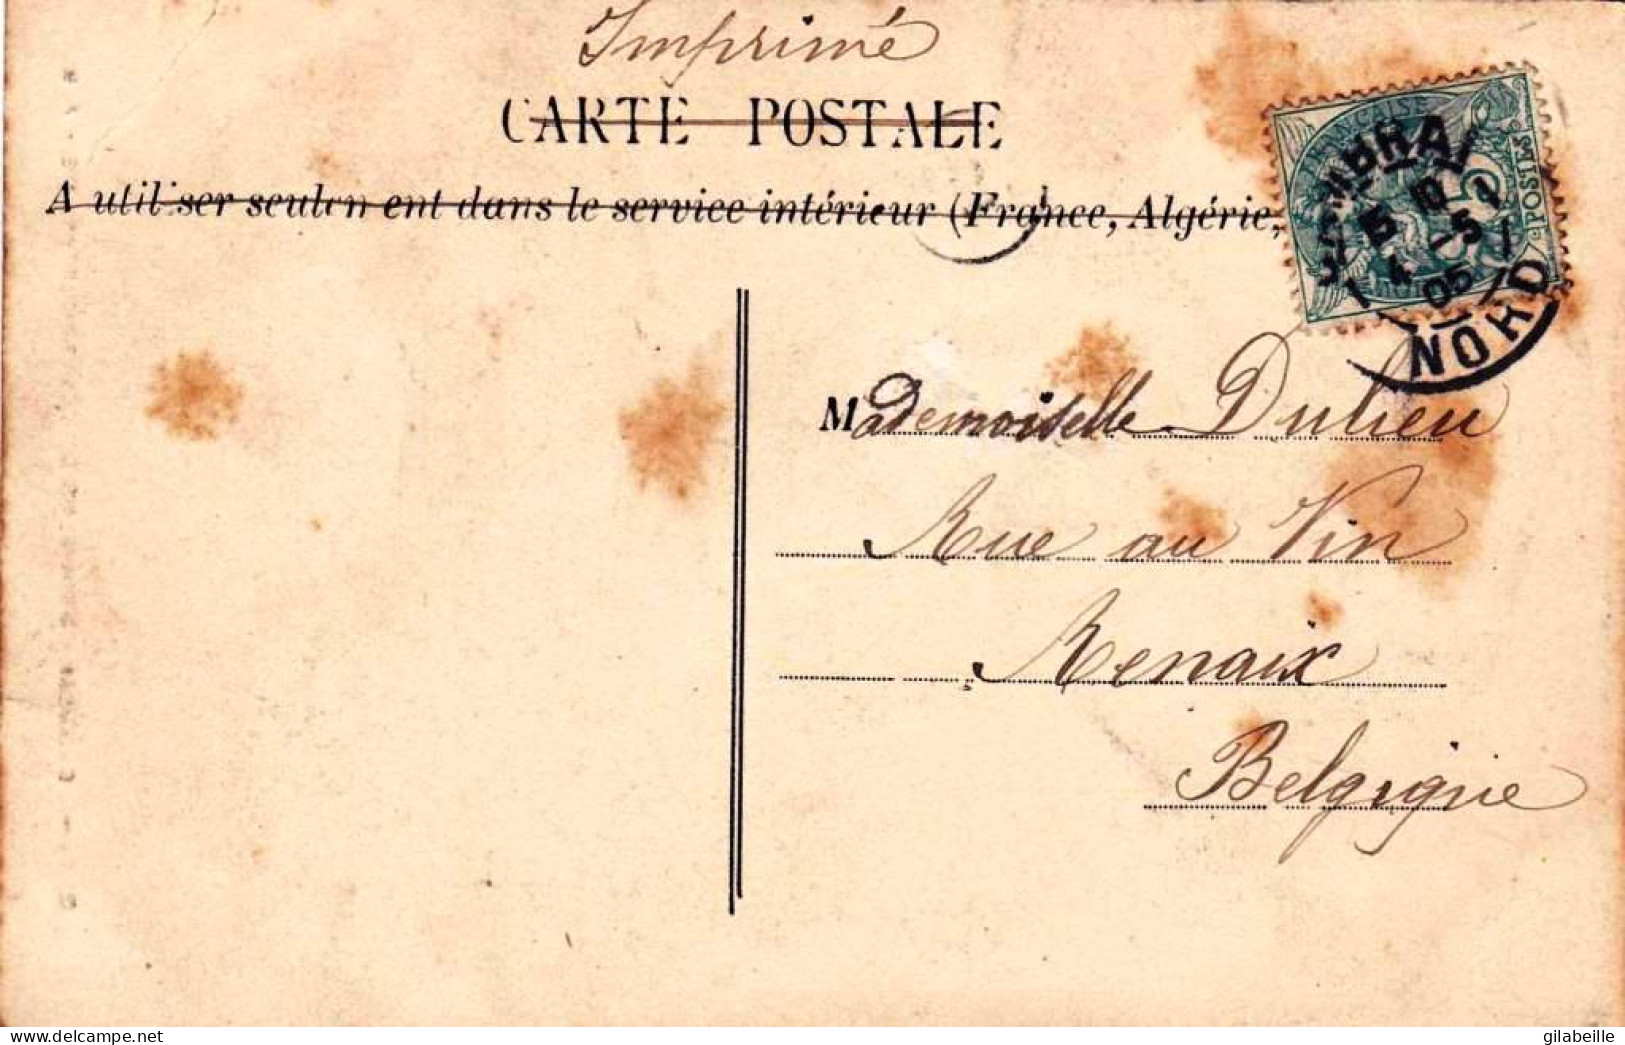 Imprimé
CARTE POSTALE
A utiliser seulement dans le service intérieur (France, Algérie,
POSTES
CAMBRAI
15 10
4 -5
05
NORD
Mademoiselle Dulieu
Rue au Vin
Renaix
Belgique
www.delcampe.net
gilabeille